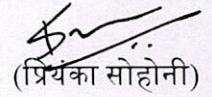 (प्रियंका सोहोनी)